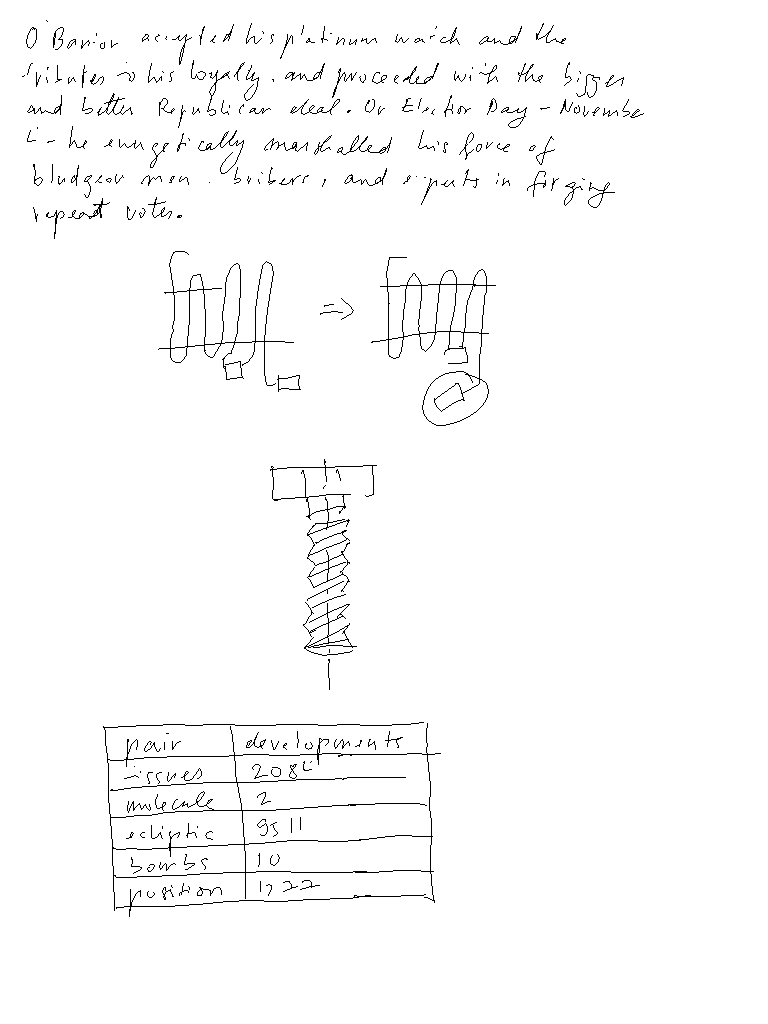 O'Banion accepted his platinum watch and the
tributes to his loyalty, and proceeded with the bigger
and better Republican deal. On Election Day - November
4 - he energetically marshalled his force of
bludgeon men, bribers, and experts in forging
repeat votes.
pair developments
tissues 2084
molecule 2
ecliptic 9511
bombs 10
position